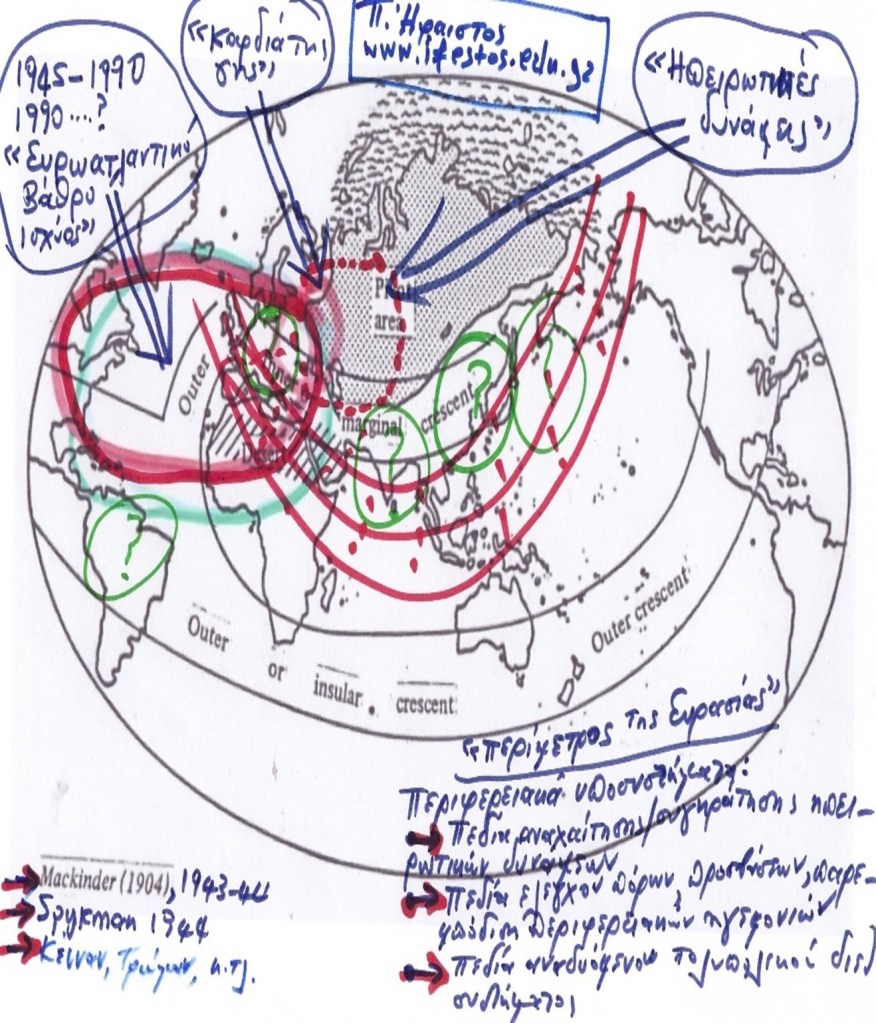 Π. Ήφαιστος
www.ifestos.edu.gr
«καρδιά της
γης»
1945-1990
1990....?
«Ευρωατλαντικό
Βάθρο
ισχύος»
«Ηπειρωτικές
δυνάμεις»
Pivot
area
Outer
crescent
marginal
Desert
?
?
?
?
?
Outer
or
insular
crescent
Outer crescent
«περίμετρος της Ευρασίας»
Περιφερειακά υποσυστήματα:
Πεδία αναχαίτησης/συγκράτησης ηπει-
ρωτικών δυνάμεων
Πεδία ελέγχου πόρων, προσβάσεων, παρε-
μπόδιση περιφερειακών ηγεμονιών
Πεδία αναδυόμενου πολυπολικού διεθ
συστήματος
Mackinder (1904), 1943-44
Spykman 1944
Κέναν, Τρούμαν, κ.τ.λ.